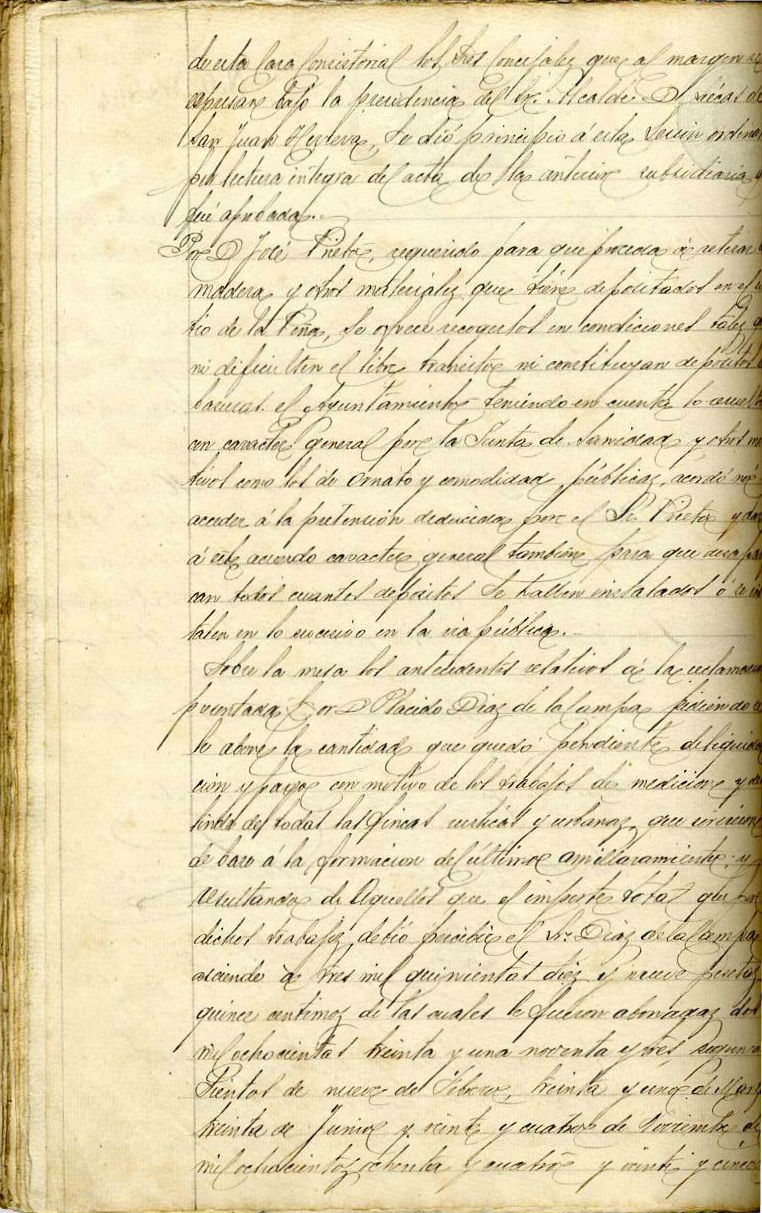 de esta Casa Consistorial los tres Concejales que al margen se
espresan bajo la presidencia del Sr. Alcalde D. Lucas de
San Juan, se dió principio á esta sesion ordina
por lectura integra del acta de la anterior subsidiaria y
fué aprobada.
Por D José Prieto, requerido para que proceda á retirar
madera y otros materiales que tiene depositados en el si
tio de la Peña, se ofrece recogerlos en condiciones tales q
ni dificulten el libre transito ni constituyan depositos
basuras. el Ayuntamiento teniendo en cuenta lo resuelto
con caracter general por la Junta de Sanidad y otros mo
tivos como los de ornato y comodidad publicas, acordó no
acceder á la pretension deducida por el Sr Prieto y dar
á este acuerdo caracter general tambien para que desapa
can todos cuantos depositos se hallen instalados ó se ins
talen en lo sucesivo en la via pública.
Sobre la mesa los antecedentes relativos á la reclamacion
presentada por D Placido Diaz de la Campa pidiendo se
le abone la cantidad que quedó pendiente de liquida
cion y pago con motivo de los trabajos de medicion y des
linde de todas las fincas rusticas y urbanas que sirvieron
de base á la formacion del último amillaramiento; y
resultando de aquellos que el importe total que por
dichos trabajos debió percibir el Sr. Diaz de la Campa
asciende á tres mil quinientas diez y nueve pesetas
quince centimos de las cuales le fueron abonadas dos
mil ochocientas treinta y una noventa y tres, segun
de nueve de Febrero, treinta y uno de Marzo
treinta de Junio y veinte y cuatro de Noviembre de
mil ochocientos ochenta y cuatro y veinte y cinco